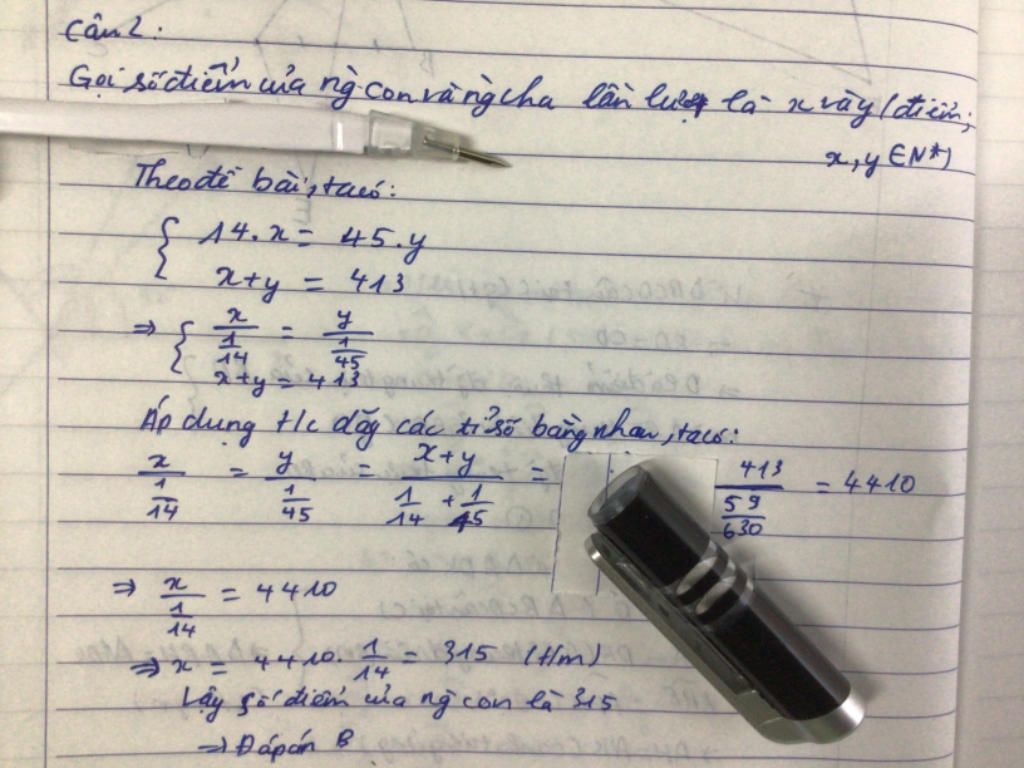 Câu 2:
Gọi số điểm của ng con và ng cha lần lượt là x và y (điểm;
x, y ∈ N*)
Theo đề bài, ta có:
{ 14.x = 45.y
x+y = 413
⇒ { x/(1/14) = y/(1/45)
x+y = 413
Áp dụng t/c dãy các tỉ số bằng nhau, ta có:
x/(1/14) = y/(1/45) = (x+y)/(1/14 + 1/45) = 413/(59/630) = 4410
⇒ x/(1/14) = 4410
⇒ x = 4410 . 1/14 = 315 (t/m)
Vậy số điểm của ng con là 315
⇒ Đáp án B